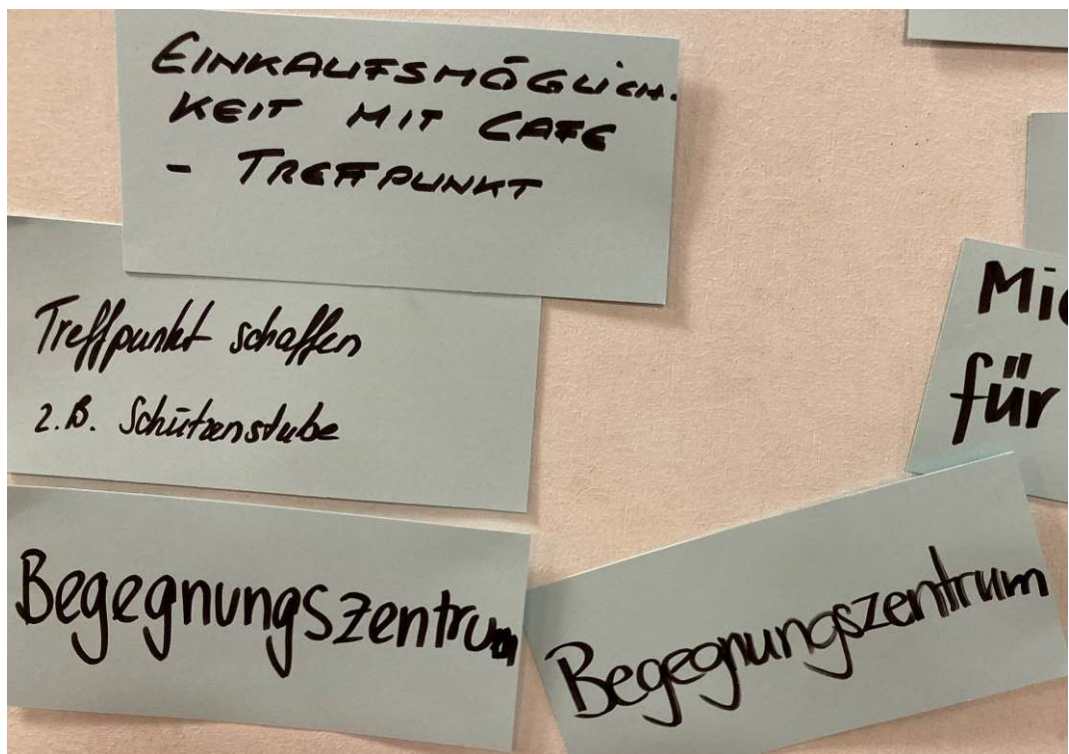 EINKAUFSMÖGLICH-
KEIT MIT CAFE
- TREFFPUNKT
Treffpunkt schaffen
z.B. Schützenstube
Begegnungszentrum
Begegnungszentrum
für